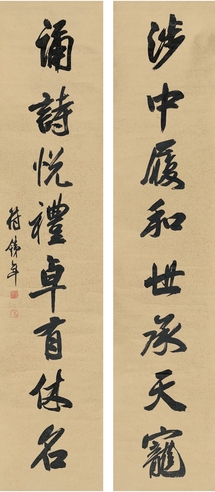 涉中履和世承天寵
誦詩悦禮卓有休名
錢年